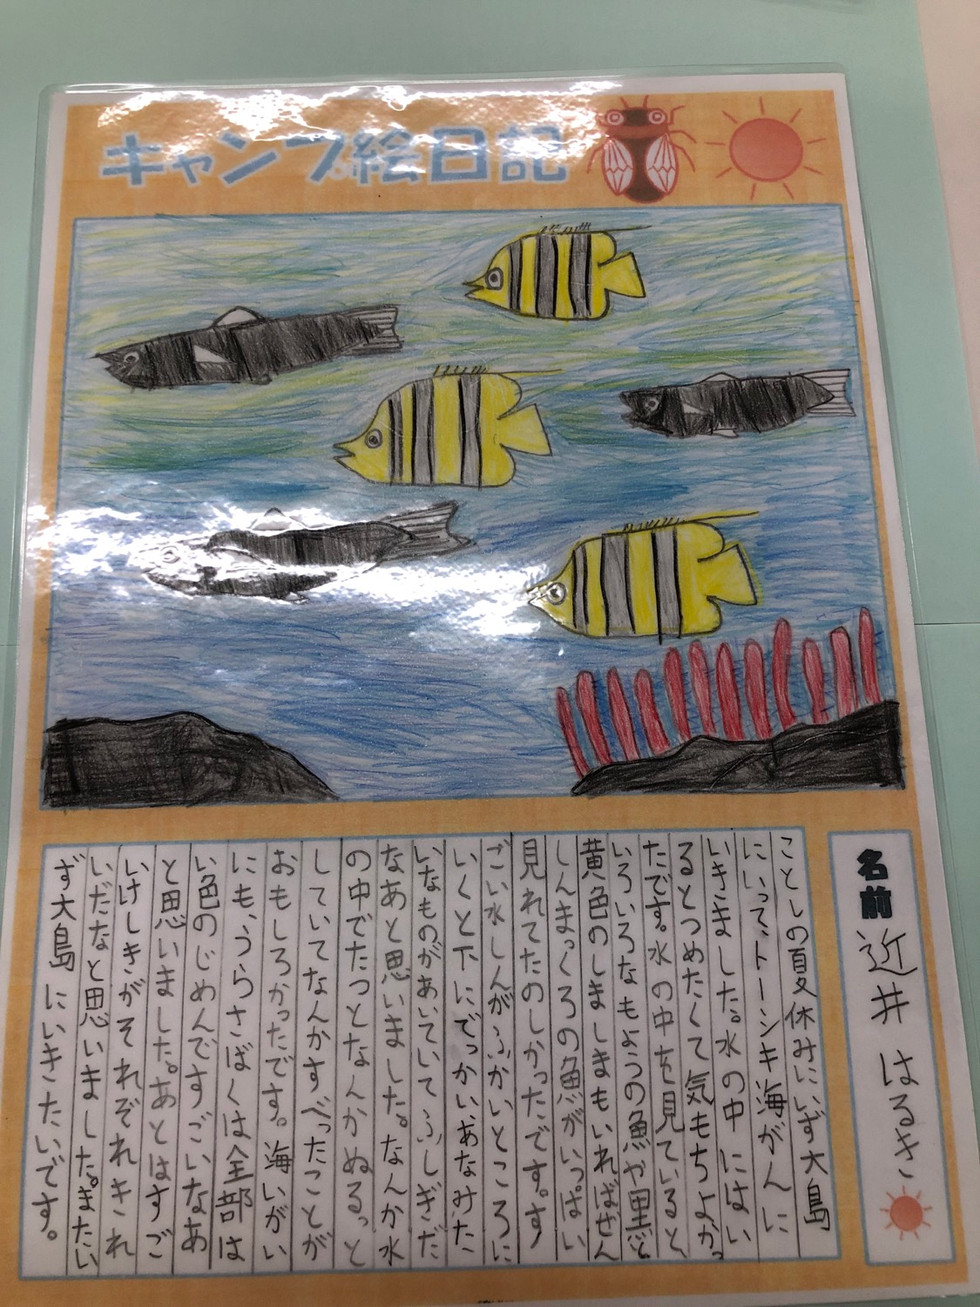 キャンプ絵日記
名前 近井 はるき
ことしの夏休みにいず大島
にいって、トーシキ海がんに
いきました。水の中にはい
るとつめたくて気もちよかっ
たです。水の中を見ていると、
いろいろなもようの魚や黒と
黄色のしましまもいればぜん
しんまっくろの魚がいっぱい
見れてたのしかったです。す
ごい水しんがふかいところに
いくと下にでっかいあなみた
いなものがあいていてふしぎだ
なあと思いました。なんか水
の中でたっとなんかぬるっと
していてなんかすべったことが
おもしろかったです。海いがい
にも、うらさばくは全部は
い色のじめんですごいなあ
と思いました。あとはすご
いけしきがそれぞれきれ
いだなと思いました。またい
ず大島にいきたいです。